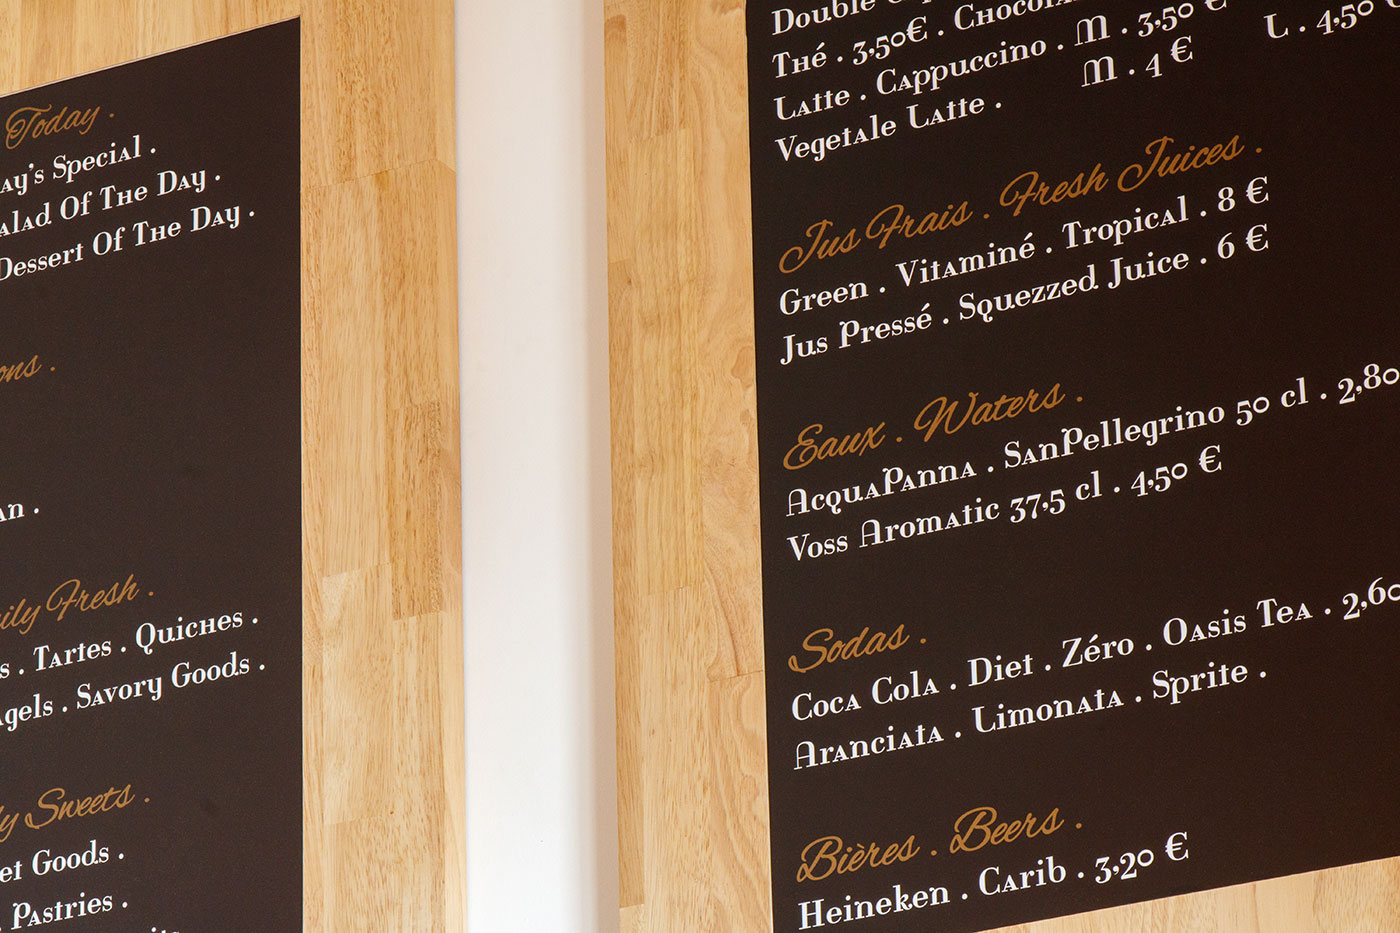 Today .
ay's Special .
alad Of The Day .
Dessert Of The Day .
ons .
an .
ily Fresh .
s . Tartes . Quiches .
agels . Savory Goods .
y Sweets .
et Goods .
. Pastries .
Double
Thé . 3,50€ . Chocola
Latte . Cappuccino . M . 3,50 € L . 4,50 €
Vegetale Latte . M . 4 €
Jus Frais . Fresh Juices .
Green . Vitaminé . Tropical . 8 €
Jus Pressé . Squezzed Juice . 6 €
Eaux . Waters .
AcquaPanna . SanPellegrino 50 cl . 2,80
Voss Aromatic 37,5 cl . 4,50 €
Sodas .
Coca Cola . Diet . Zéro . Oasis Tea . 2,60
Aranciata . Limonata . Sprite .
Bières . Beers .
Heineken . Carib . 3,20 €